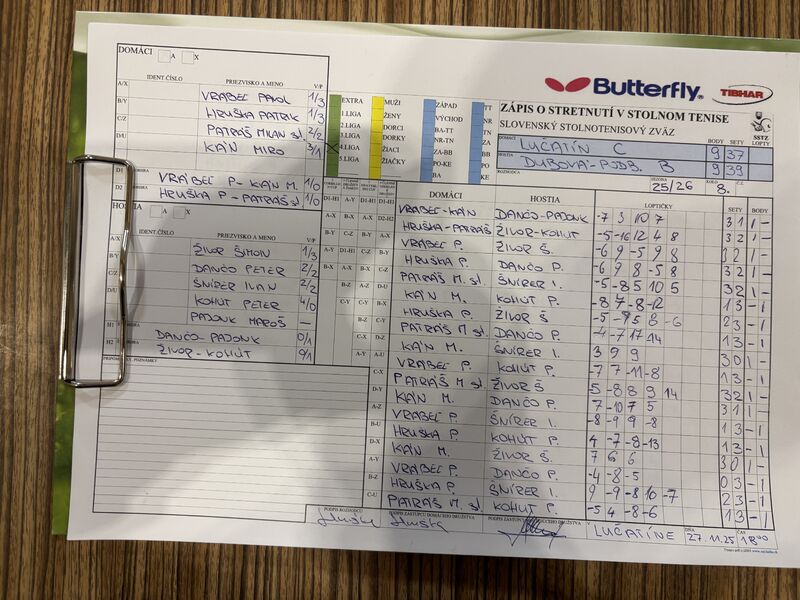 DOMÁCI A X
IDENT.ČÍSLO PRIEZVISKO A MENO V/P
A/X VRÁBEĽ PAVOL 1/3
B/Y HRUŠKA PATRIK 1/3
C/Z PATRÁŠ MILAN st. 2/2
D/U KÁN MIRO 3/1
D1 VRÁBEĽ P - KÁN M. 1/0
D2 HRUŠKA P - PATRÁŠ st. 1/0
HOSTIA A X
IDENT.ČÍSLO PRIEZVISKO A MENO V/P
A/X ŽIVOR ŠIMON 1/3
B/Y DANČO PETER 2/2
C/Z ŠNÍRER IVAN 2/2
D/U KOHÚT PETER 4/0
PADONK MAROŠ —
H1 DANČO - PADONK 0/1
H2 ŽIVOR - KOHÚT 0/1
EXTRA
1.LIGA
2.LIGA
3.LIGA
4.LIGA
5.LIGA
MUŽI
ŽENY
DORCI
DORKY
ŽIACI
ŽIAČKY
ZÁPAD
VÝCHOD
BA-TT
NR-TN
ZA-BB
PO-KE
BA
TT
NR
TN
ZA
BB
PO
KE
Butterfly TIBHAR
ZÁPIS O STRETNUTÍ V STOLNOM TENISE
SLOVENSKÝ STOLNOTENISOVÝ ZVÄZ SSTZ
BODY SETY LOPTY
DOMÁCI LUČATÍN C 9 37
HOSTIA DUBOVÁ-PODB. B 9 39
ROZHODCA
SEZÓNA 25/26 KOLO 8. Č.Z.
DOMÁCI HOSTIA LOPTIČKY SETY BODY
VRÁBEĽ-KÁN DANČO-PADONK -7 3 10 7 3 1 1 -
HRUŠKA-PATRÁŠ ŽIVOR-KOHÚT -5 -16 12 4 8 3 2 1 -
VRÁBEĽ P. ŽIVOR Š. -6 9 -5 9 8 3 2 1 -
HRUŠKA P. DANČO P. -6 9 8 -5 8 3 2 1 -
PATRÁŠ M. st. ŠNÍRER I. -5 -8 5 10 5 3 2 1 -
KÁN M. KOHÚT P. -8 7 -8 -12 1 3 - 1
HRUŠKA P. ŽIVOR Š 2 3 - 1
PATRÁŠ M st. DANČO P. -4 -7 17 -14 1 3 - 1
KÁN M. ŠNÍRER I. 3 9 9 3 0 1 -
VRÁBEĽ P. KOHÚT P. -7 7 -11 -8 1 3 - 1
PATRÁŠ M st. ŽIVOR Š -5 -8 8 9 14 3 2 1 -
KÁN M. DANČO P. 7 -10 7 5 3 1 1 -
VRÁBEĽ P. ŠNÍRER I. -8 -9 9 -8 1 3 - 1
HRUŠKA P. KOHÚT P. 4 -7 -8 -13 1 3 - 1
KÁN M. ŽIVOR Š. 7 6 6 3 0 1 -
VRÁBEĽ P. DANČO P. -4 -8 -5 0 3 - 1
HRUŠKA P. ŠNÍRER I. 9 -9 -8 10 -7 2 3 - 1
PATRÁŠ M. st. KOHÚT P. -5 4 -8 -6 1 3 - 1
PODPIS ROZHODCU PODPIS ZÁSTUPCU DOMÁCEHO DRUŽSTVA
V LUČATÍNE DŇA 27.11.25 ČAS 18 00